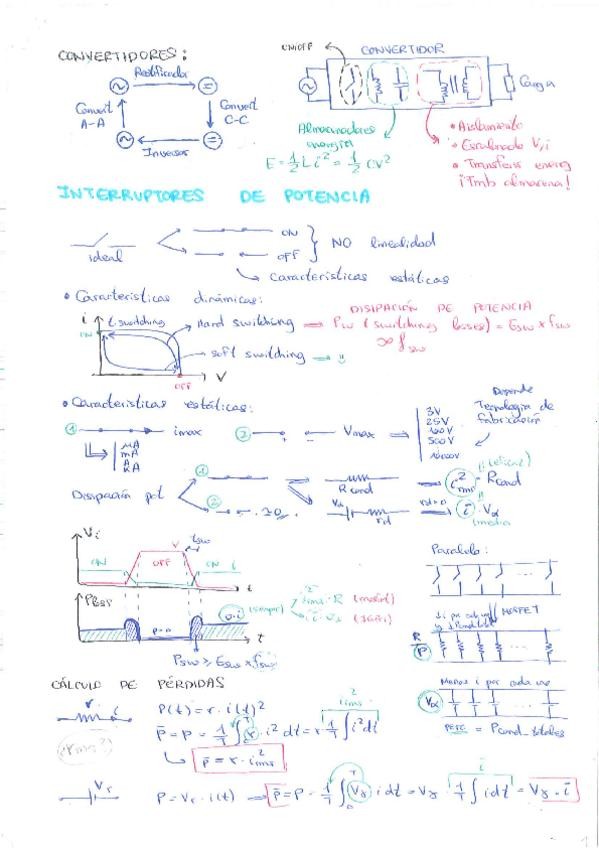 CONVERTIDORES:
Rectificador
Convert
A-A
Convert
C-C
Inversor
ON/OFF
CONVERTIDOR
Carga
Almacenadores
energía
E = 1/2 L i² = 1/2 CV²
• Aislamiento
• Escalado V, i
• Transfers energ
¡Tmb almacena!
INTERRUPTORES DE POTENCIA
ideal
ON
OFF
NO linealidad
Características estáticas
• Características dinámicas:
i
t. switching
ON
OFF
V
Hard switching
soft switching
DISIPACIÓN DE POTENCIA
Psw (switching losses) = Esw x fsw
∝ fsw
• Características estáticas:
1
imax
μA
mA
A
KA
2
Vmax
3V
25V
100V
500V
10000V
Depende
Tecnología de
fabricación
Disipación pot
1
2
Rcond
i²rms · Rcond
(eficaz)
Vα
rd
rd=0
i · Vα
(media)
V, i
tsw
V
ON
OFF
ON
i
t
PDISP
P=0
t
i²rms · R (mosfet)
i · Vα (IGBT)
Psw > Esw x fsw
Paralelo:
MOSFET
R
P
Menos i por cada uno
Vα
PERO = Pcond_totales
CÁLCULO DE PÉRDIDAS
r
i
P(t) = r · i(t)²
p̄ = P = 1/T ∫ r · i² dt = r 1/T ∫ i² dt
i²rms
p̄ = r · i²rms
(rms?)
Vγ
P = Vγ · i(t) ⇒ p̄ = P = 1/T ∫ Vγ i dt = Vγ · 1/T ∫ i dt = Vγ · ī
ī
1